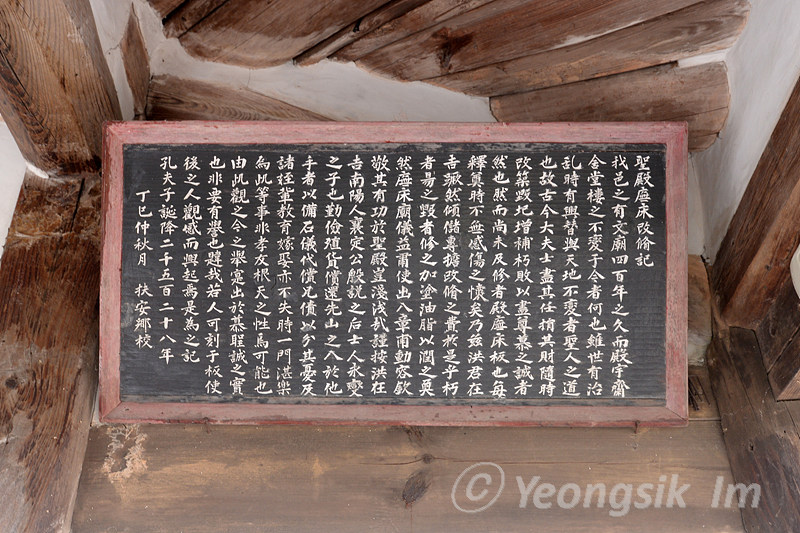 聖殿廡床改脩記
我邑之有文廟四百年之久而殿宇齋
舍堂樓之不變于今者何也雖世有治
亂時有興替與天地不變者聖人之道
也故古今大夫士盡其任捐其財隨時
改築毀圮增補朽敗以盡尊慕之誠者
然也然而尚未及修者殿廡床板也每
釋奠時不無感傷之懷矣乃玆洪君在
吉輒然傾儲專擔改脩之費於是乎朽
者易之毀者修之加塗油脂以潤之奐
然廡床廟儀益肅使出入章甫動容欽
敬其有功於聖殿豈淺淺哉謹按洪在
吉南陽人襄定公殷說之后士人永
之子也勤儉殖貨償還先山之入於他
手者以備石儀代償兄債以分其憂及
諸姪輩教育嫁娶亦不失時一門湛樂
爲此等事非孝友根天之性焉可能也
由此觀之今之擧寔出於慕聖誠之實
也非要有譽也韙哉若人可刻于板使
後之人觀感而興起焉是爲之記
孔夫子誕降二千五百二十八年
丁巳仲秋月 扶安鄕校
© Yeongsik Im